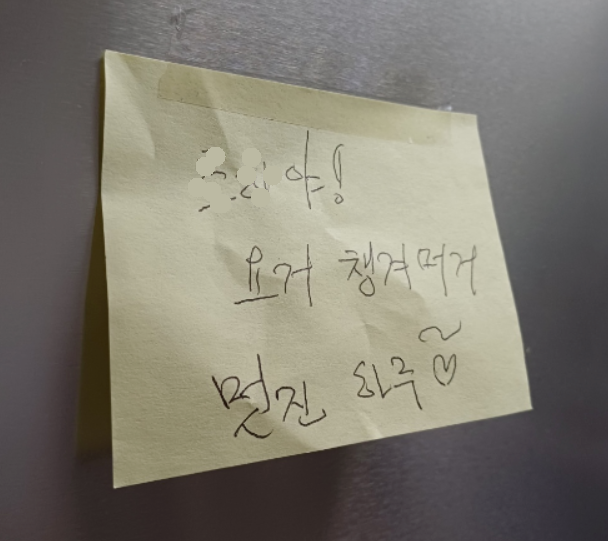 야!
요거 챙겨머거
멋진 하루~♡